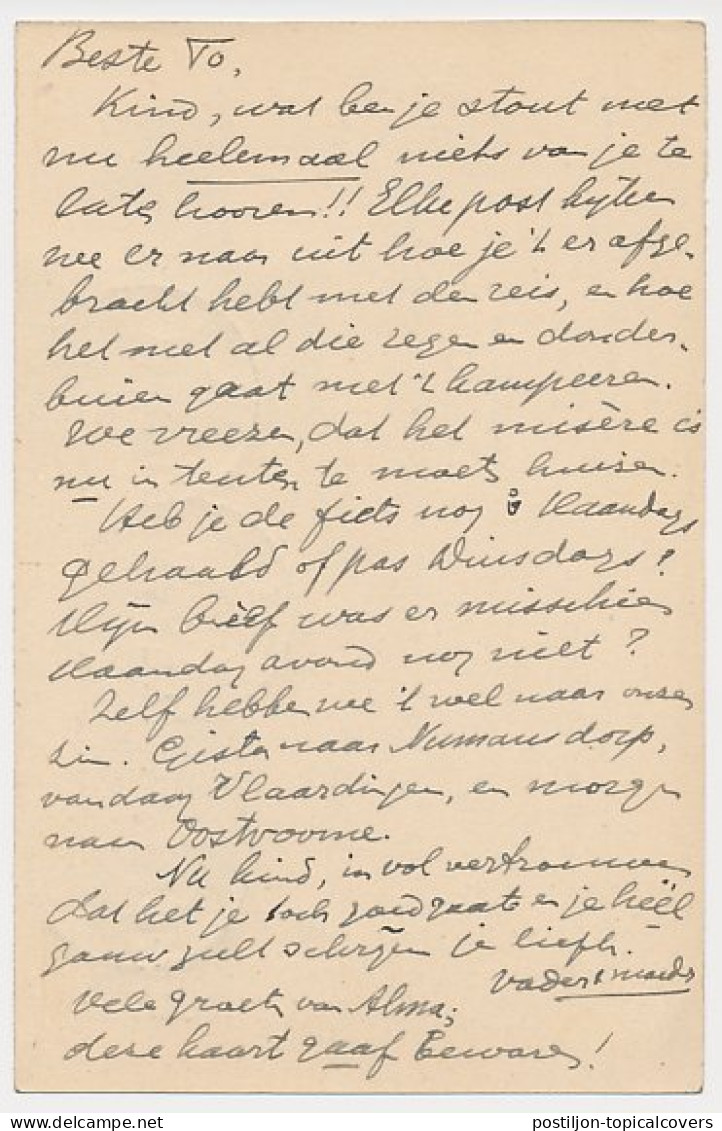 Beste To,
Kind, wat ben je stout met
nu heelemaal niets van je te
laten hooren!! Elke post kijken
we er naar uit hoe je 't er afge-
bracht hebt met den reis, en hoe
het met al die regen en donder-
buien gaat met 't kampeeren.
We vreezen, dat het misère is
nu in tenten te moeten huizen.
Heb je de fiets nog Maandags
gehaald of pas Dinsdags?
Mijn brief was er misschien
Maandag avond nog niet?
Zelf hebben we 't wel naar onzen
zin. Gisteren naar Numansdorp,
vandaag Vlaardingen, en morgen
naar Oostvoorne.
Nu kind, in vol vertrouwen
dat het je toch goed gaat en je héél
gauw zult schrijven je liefh.
vader & moeder
Vele groeten van Alma;
deze kaart gaaf bewaren!
postiljon-topicalcovers